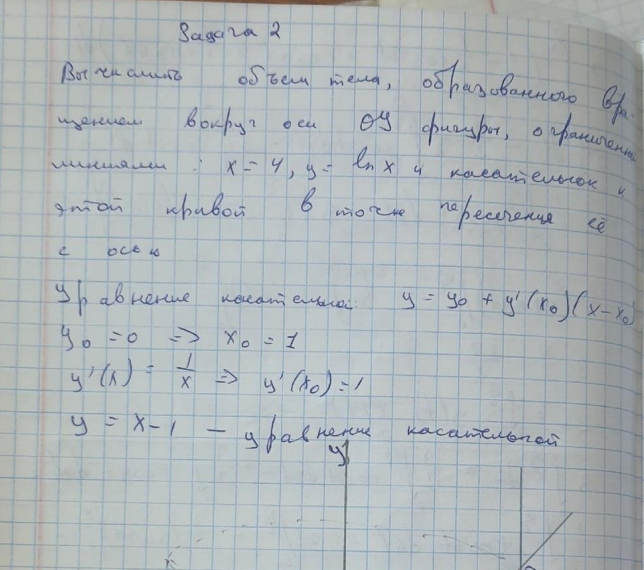 Задача 2
Вычислить объем тела, образованного вра-
щением вокруг оси ОУ фигуры, ограниченн
линиями: x = 4, y = ln x и касательной к
этой кривой в точке пересечения её
с осью
Уравнение касательной y = y₀ + y'(x₀)(x-x₀)
y₀ = 0 => x₀ = 1
y'(x) = 1/x => y'(x₀) = 1
y = x-1 — уравнение касательной
y